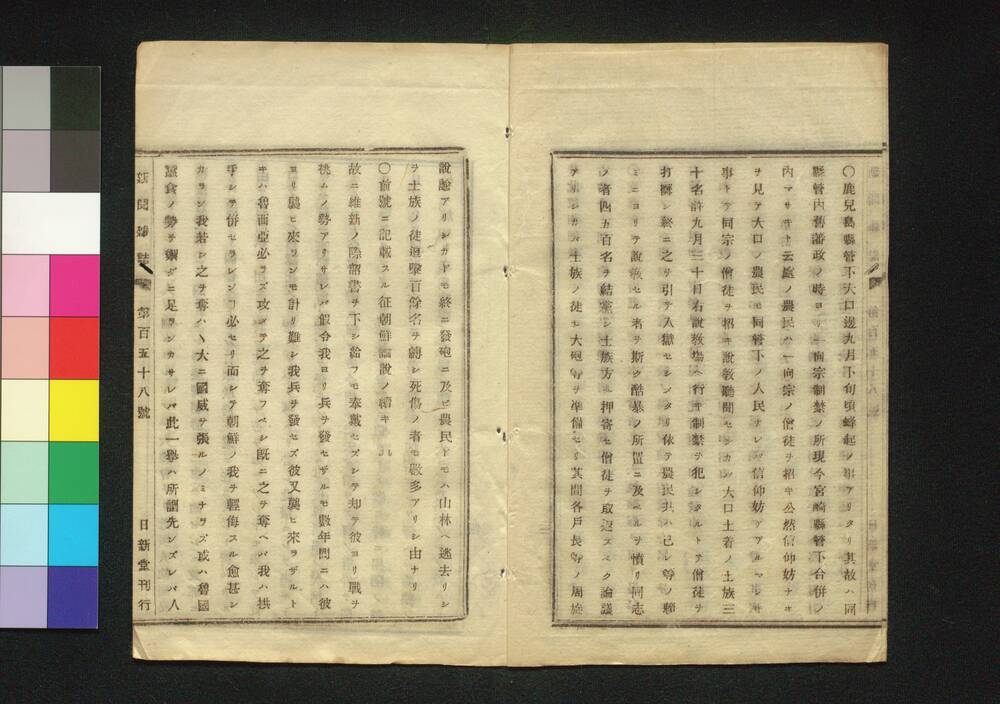 〇鹿兒島縣管下大口邊九月下旬頃蜂起ノ事アリタリ其故ハ同
縣管内舊藩政ノ時ヨリ一向宗制禁ノ所現今宮崎縣管下合併ノ
内マサキト云處ノ農民ハ一向宗ノ僧徒ヲ招キ公然信仰妨ナキ
ヲ見テ大口ノ農民モ同管下ノ人民ナレバ信仰妨アルマシキ
事トテ同宗ノ僧徒ヲ招キ説敎聽聞セシカハ大口土着ノ士族三
十名許九月三十日右説敎塲ヘ行キ制禁ヲ犯シタルトテ僧徒ヲ
打擲シ終ニ之ヲ引テ入獄セシメタリ依テ農民共ハ己レ等ノ頼
ミニヨリテ説敎セル者ヲ斯ク酷暴ノ所置ニ及ベルヲ憤リ同志
ノ者四五百名ヲ結黨シ士族方ヘ押寄セ僧徒ヲ取返スベク論議
アリシカバ士族ノ徒モ大砲等ヲ準備セリ其間各戸長等ノ周旋
説諭アリシカドモ終ニ發砲ニ及ビ農民ドモハ山林ヘ逃去リシ
ヲ士族ノ徒追撃百餘名ヲ縛シ死傷ノ者モ數多アリシ由ナリ
〇前號ニ記載スル征朝鮮論説ノ續キ
故ニ維新ノ際詔書ヲ下シ給フモ奉戴セズシテ却テ彼ヨリ戰ヲ
挑ムノ勢アリサレバ假令我ヨリ兵ヲ發セザルモ數年間ニハ彼
ヨリ襲ヒ來ランモ計リ難シ我兵ヲ發セズ彼又襲ヒ來ラザルト
キハ魯西亞必ラズ攻メテ之ヲ奪フベシ既ニ之ヲ奪ヘバ我ハ拱
手シテ併セラレンヿ必セリ而シテ朝鮮ノ我ヲ輕侮スル愈甚シ
カラン我若シ之ヲ奪ハヽ大ニ國威ヲ張ルノミナラズ或ハ魯國
蠶食ノ勢ヲ禦グニ足ランカサレバ此一擧ハ所謂先ンズレバ人
新聞雜誌 第百五十八號 日新堂刊行